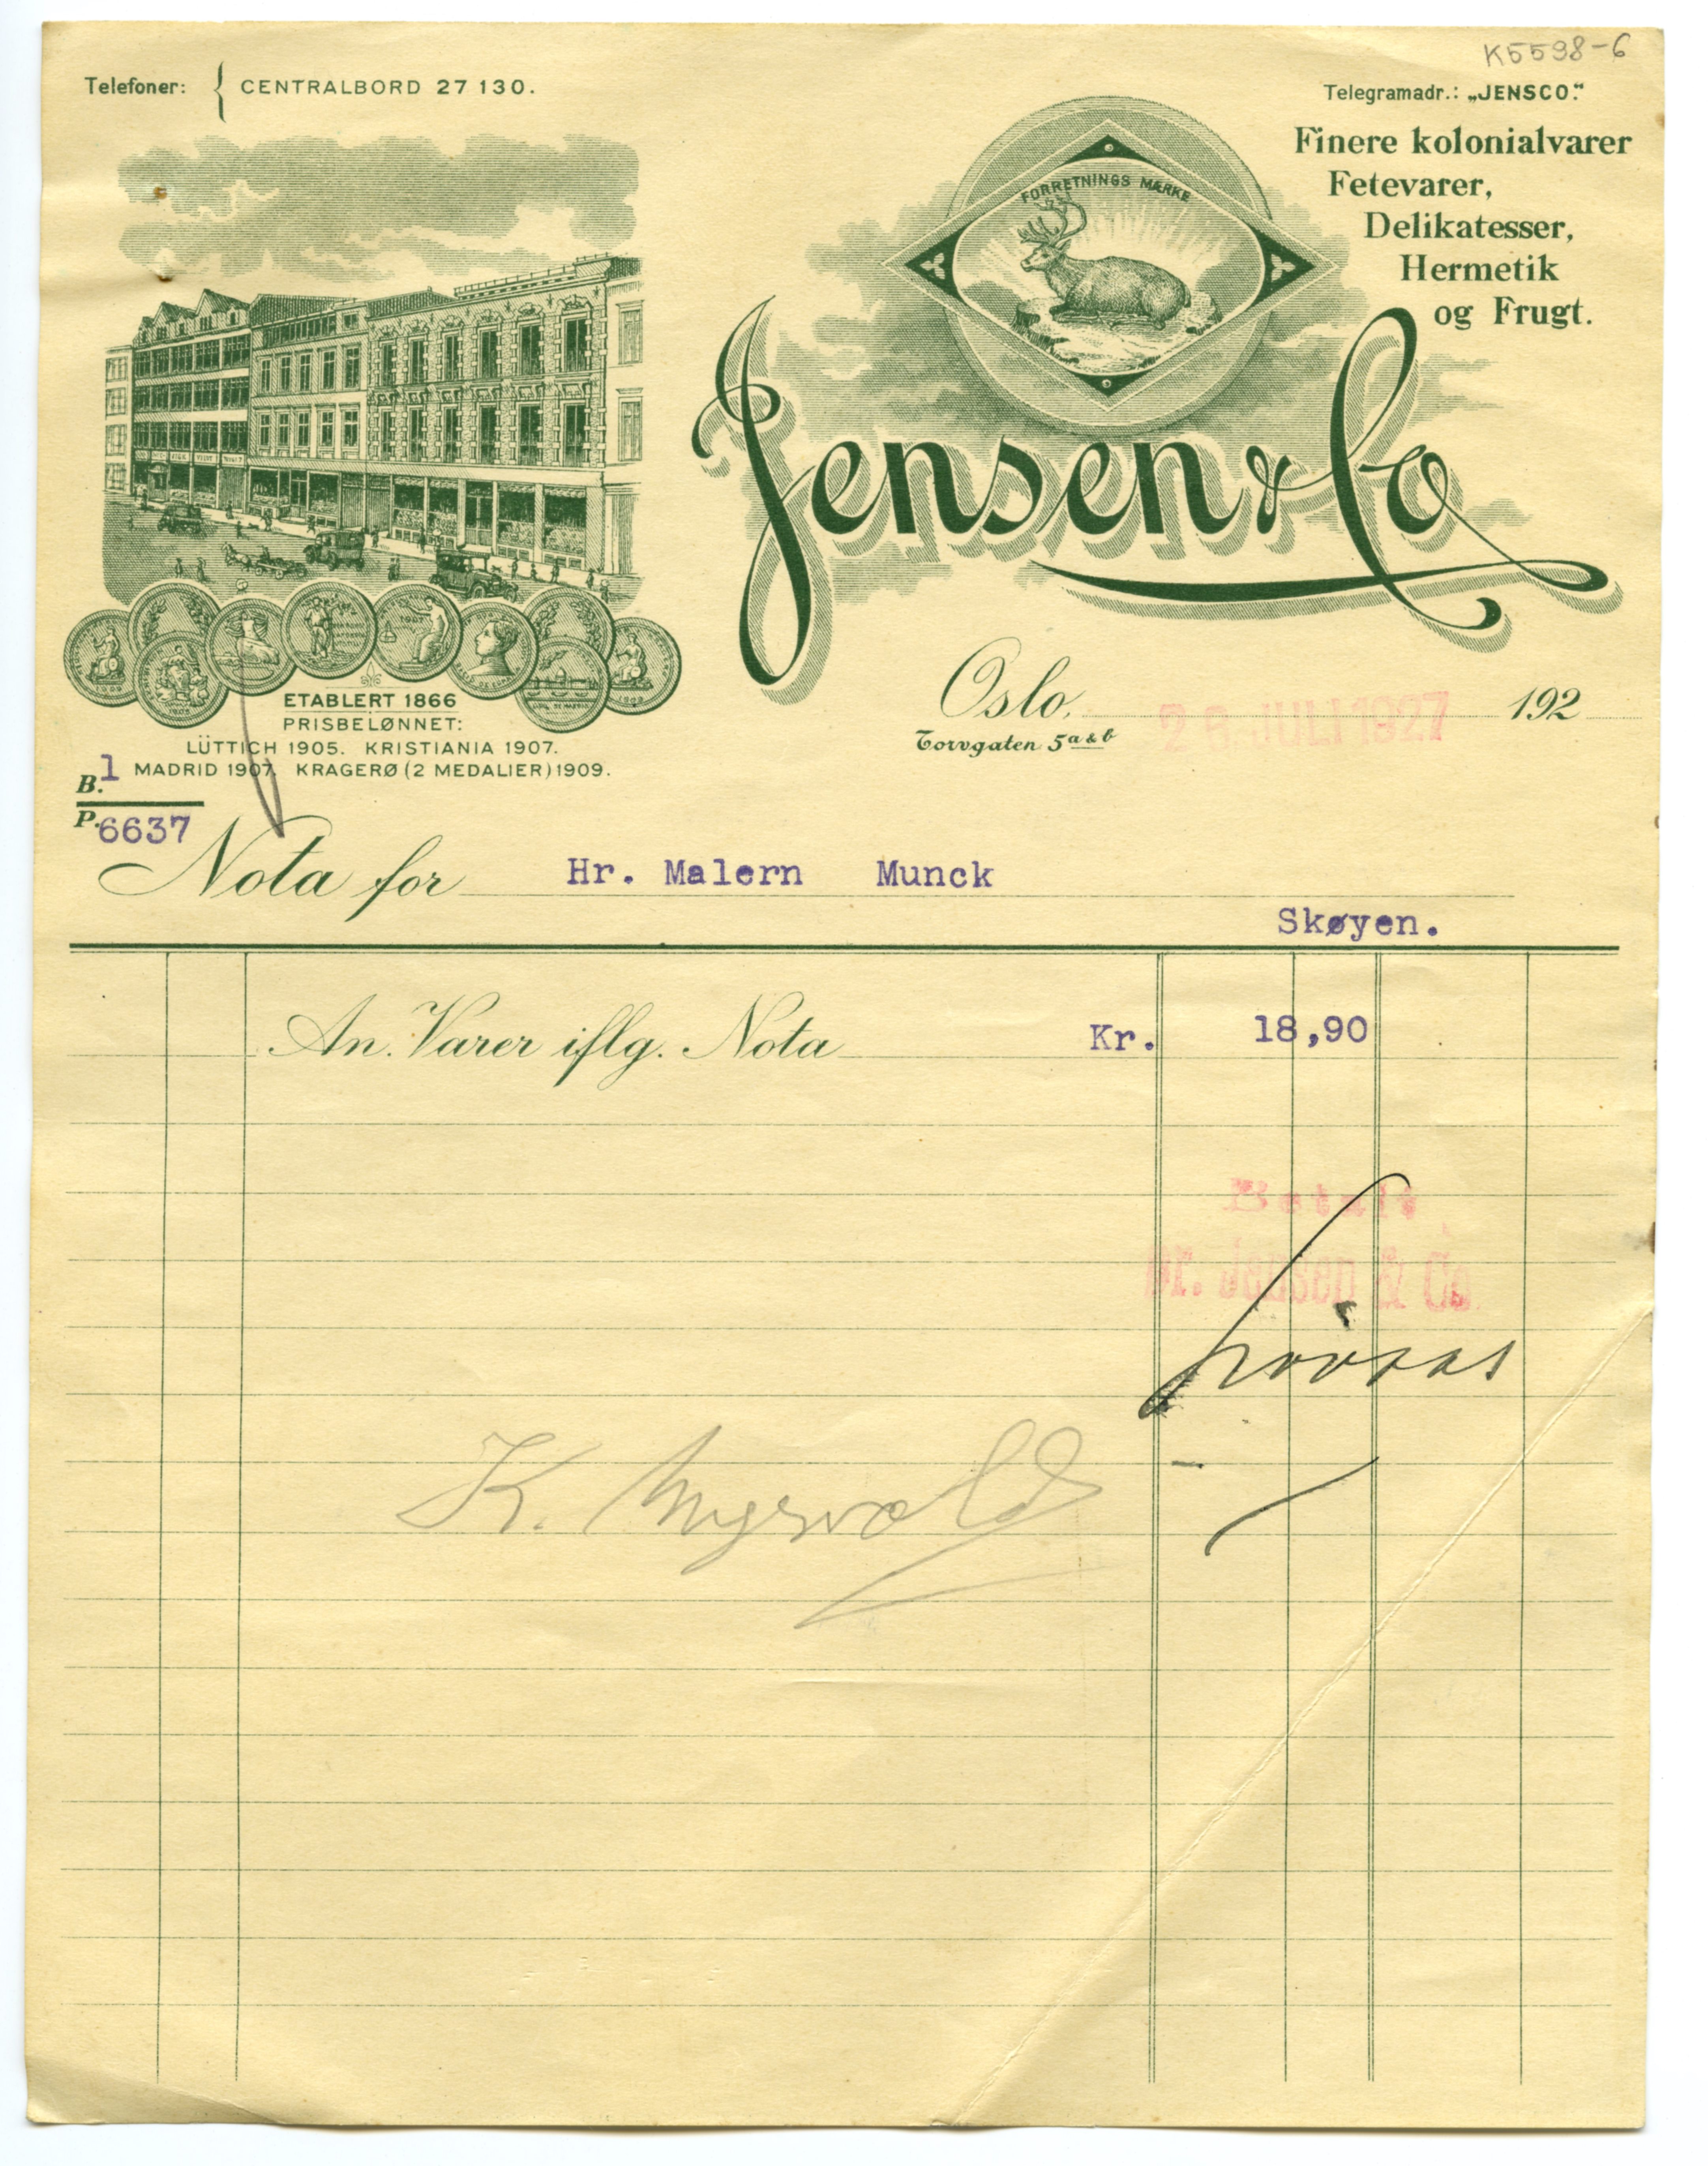 K5598-6
Telefoner: { CENTRALBORD 27 130.
Telegramadr.: „JENSCO."
Finere kolonialvarer
Fetevarer,
Delikatesser,
Hermetik
og Frugt.
FORRETNINGS MÆRKE
Jensen & Co
ETABLERT 1866
PRISBELØNNET:
LÜTTICH 1905. KRISTIANIA 1907.
MADRID 1907. KRAGERØ (2 MEDALIER) 1909.
Oslo, 26 JULI 1927 192
Torvgaten 5 a & b
B. 1
P. 6637
Nota for Hr. Malern Munck
Skøyen.
An. Varer iflg. Nota Kr. 18,90
Betalt
pr. Jensen & Co.
K. Myrvold